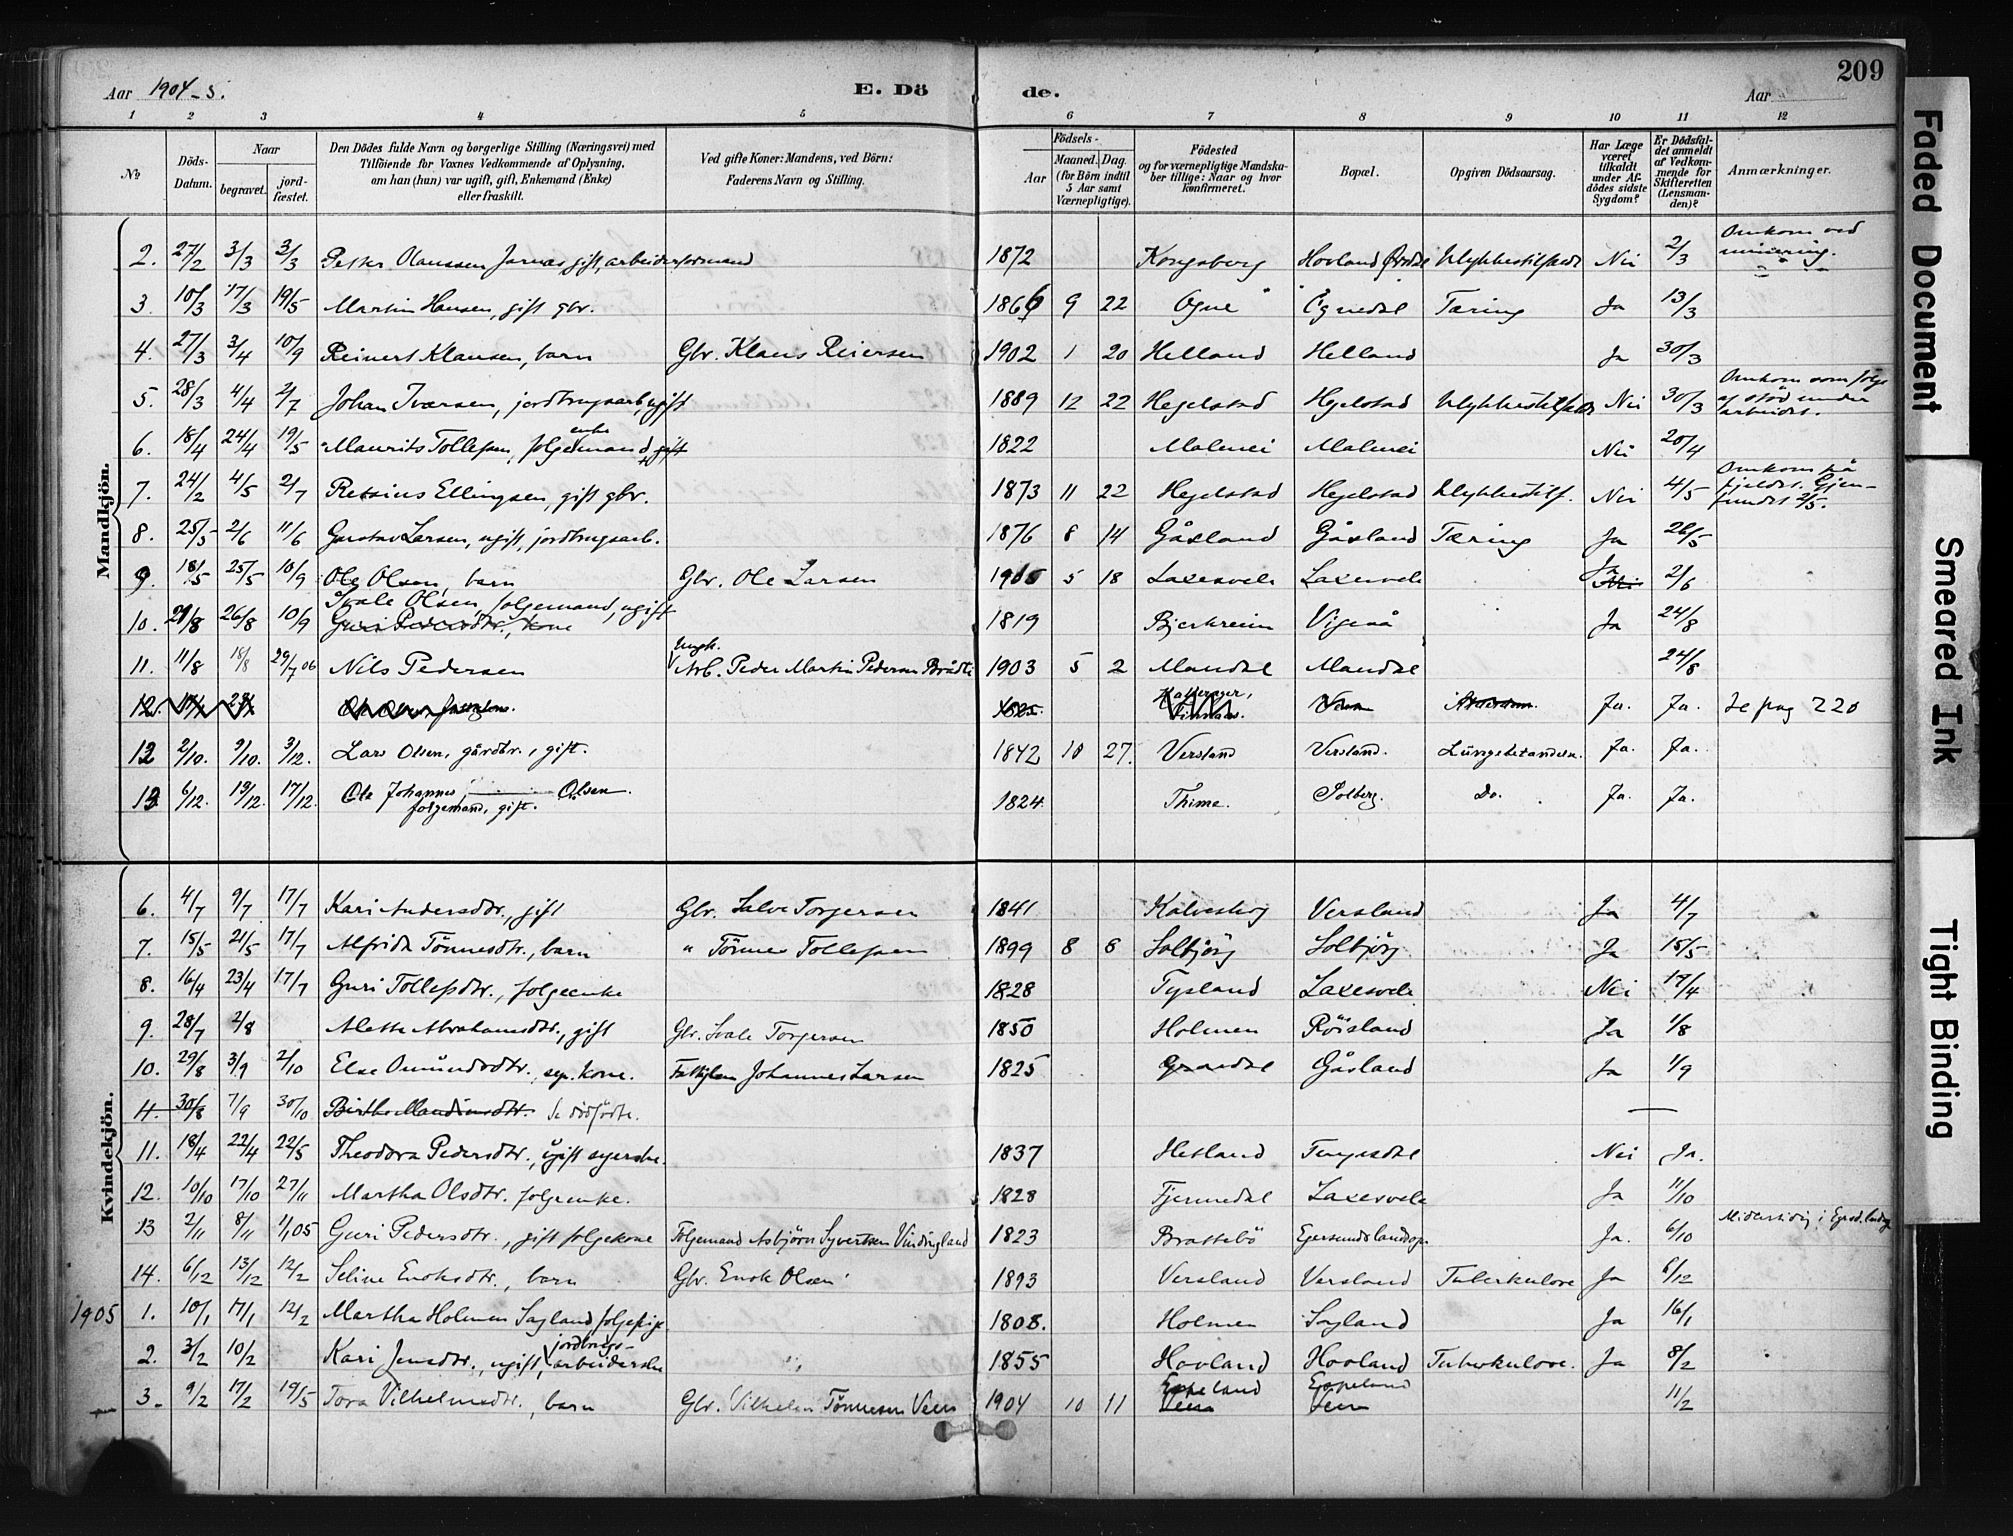 209
Aar 1904-5.
E. Dö
de.
Aar
1 2 3 4 5 6 7 8 9 10 11 12
No
Döds-Datum.
Naar
begravet.
jord-fæstet.
Den Dödes fulde Navn og borgerlige Stilling (Næringsvei) med
Tilföiende for Voxnes Vedkommende af Oplysning,
om han (hun) var ugift, gift, Enkemand (Enke)
eller fraskilt.
Ved gifte Koner: Mandens, ved Börn:
Faderens Navn og Stilling.
Födsels-
Aar
Maaned.
Dag.
(for Börn indtil
5 Aar samt
Værnepligtige).
Födested
og for værnepligtige Mandska-
ber tillige: Naar og hvor
Konfirmeret.
Bopæl.
Opgiven Dödsaarsag.
Har Læge
været
tilkaldt
under Af-
dödes sidste
Sygdom?
Er Dödsfal-
det anmeldt
af Vedkom-
mende for
Skifteretten
(Lensman-
den)?
Anmærkninger.
Mandkjön.
2. 27/2 3/3 3/3 Petter Olaussen Jarnæs gift, arbeiderformand 1872 Kongsberg Hovland Ørsdal Ulykkestilfælde Nei 2/3 Omkom ved minering.
3. 10/3 17/3 19/5 Martin Hansen, gift gbr. 1866 9 22 Ogne Egnedal Tæring Ja 13/3
4. 27/3 3/4 10/9 Reinert Klausen, barn Gbr. Klaus Reiersen 1902 1 20 Helland Helland Ja 30/3
5. 28/3 4/4 2/7 Johan Iversen, jordbrugsarb, ugift 1889 12 22 Hegelstad Hegelstad Ulykkestilfælde Nei 30/3 Omkom som følge af stød under arbeidet.
6. 18/4 24/4 19/5 Maurits Tollefsen, folgeenkemand, gift 1822 Malmei Malmei Nei 20/4
7. 24/2 4/5 2/7 Retsius Ellingsen, gift gbr. 1873 11 22 Hegelstad Hegelstad Ulykkestilf. Nei 4/5 Omkom på fjeldet. Gjen-fundet 2/5.
8. 25/5 2/6 11/6 Gustav Larsen, ugift, jordbrugsarb. 1876 8 14 Gåsland Gåsland Tæring Ja 26/5
9. 18/5 25/5 10/9 Ole Olsen, barn Gbr. Ole Larsen 1905 5 18 Laxesvele Laxesvele Ja Nei 2/6
10. 21/8 26/8 10/9 Svale Olsen, folgemand, ugift Guri Pedersdtr., kone 1819 Bjerkreim Vigeså Ja 24/8
11. 11/8 18/8 29/7 06 Nils Pedersen Ungk. Arb. Peder Martin Pedersen Brådli 1903 5 2 Mandal Mandal 24/8
12. 1825. Ja. Ja. Se pag 220
12 2/10. 9/10. 3/12. Lars Olsen, gårdbr., gift. 1842 10 27. Versland Versland. Lungebetændelse. Ja. Ja.
13. 6/12. 19/12. 17/12. Ole Johannes Olsen folgemand, gift. 1824 Thime. Solberg. Do. Ja. Ja.
Kvindekjön.
6. 4/7 9/7 17/7 Kari Andersdtr., gift Gbr. Salve Torgersen 1841 Kalveskog Versland Ja 4/7
7. 15/5 21/5 17/7 Alfrida Tönnesdtr., barn " Tönnes Tollefsen 1899 8 6 Solbjörg Solbjörg Ja 15/5
8. 16/4 23/4 17/7 Guri Tollefsdtr., folgeenke 1828 Tysland Laxesvele Nei 17/4
9. 28/7 2/8 Alette Abrahamsdtr., gift Gbr. Svale Torgersen 1850 Holmen Röisland Ja 1/8
10. 29/8 3/9 2/10 Else Omundsdtr., sep. kone. Fattiglem Johannes Larsen 1825 Grøndal Gåsland Ja 1/9
4. 30/8 7/9 30/10 Birthe Maudinsdtr. Se dödfödte. —
11. 18/4 22/4 22/5 Theodora Pedersdtr., ugift syerske. 1837 Hetland Tengesdal Nei Ja.
12. 10/10 17/10 27/11 Martha Olsdtr. folgeenke. 1828 Tjermedal Laxesvele Ja 11/10
13 2/11 8/11 1/1 05 Guri Pedersdtr., gift folgekone Folgemand Asbjörn Syvertsen Vindingland 1823 Brattebö Egersundslandsogn Ja. 6/10 Midlertidig i Egersd. landsogn
14. 6/12 13/12 12/2 Seline Enoksdtr., barn Gbr. Enok Olsen 1893 Versland Versland Tuberkulose Ja 6/12
1905 1. 10/1 17/1 12/2 Martha Holmen Sagland folgepige 1808. Holmen Sagland Ja 16/1
2. 3/2 10/2 Kari Jensdtr., ugift, jordbrugs-arbeiderske 1855 Hovland Hovland Tuberkulose. Ja 8/2
3. 9/2 17/2 19/5 Tora Vilhelmsdtr., barn Gbr. Vilhelm Tönnesen Veen 1904 10 11 Espeland Veen Espeland Veen 11/2
Faded Document
Smeared Ink
Tight Binding